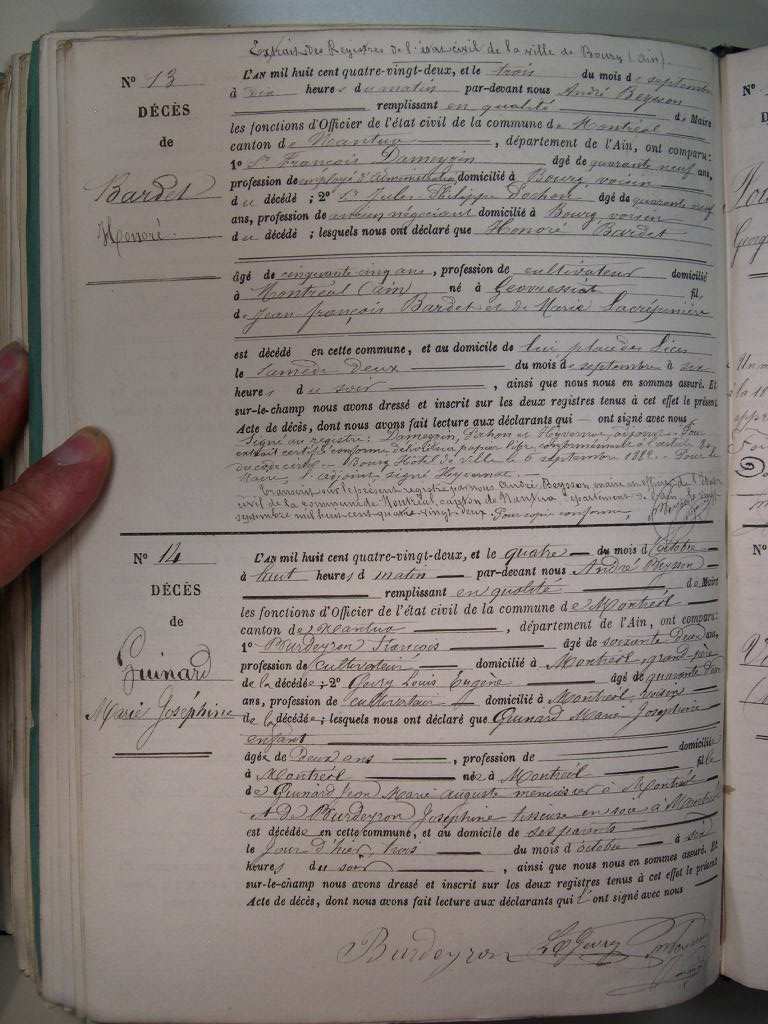 Extrait des Registres de l'état civil de la ville de Bourg (Ain).
N° 13
DÉCÈS
de
Bardet
Honoré
L'AN mil huit cent quatre-vingt-deux, et le trois du mois de septembre
à dix heures du matin par-devant nous André Beysson
remplissant en qualité de Maire
les fonctions d'Officier de l'état civil de la commune de Montréal
canton de Nantua, département de l'Ain, ont comparu:
1° Sr François Dameyzin âgé de quarante neuf ans,
profession de employé d'administration domicilié à Bourg voisin
du décédé; 2° Sr Jules Philippe Dochon âgé de quarante neuf
ans, profession de ancien négociant domicilié à Bourg voisin
du décédé; lesquels nous ont déclaré que Honoré Bardet
âgé de cinquante cinq ans, profession de cultivateur domicilié
à Montréal (ain né à Geovressiat fil
de Jean françois Bardet et de Marie Lacrépinière
est décédé en cette commune, et au domicile de lui place des Lices
le samedi deux du mois de septembre à six
heures du soir, ainsi que nous nous en sommes assuré. Et
sur-le-champ nous avons dressé et inscrit sur les deux registres tenus à cet effet le présent
Acte de décès, dont nous avons fait lecture aux déclarants qui ont signé avec nous
Signé au registre: Dameyzin, Dochon et Hyvernat, adjoint. Pour
extrait certifié conforme délivré sur papier libre conformément à l'article 80
du code civil. Bourg Hôtel de Ville le 5 septembre 1882. Pour le
Maire, l'adjoint, signé Hyvernat.
Transcrit sur le présent registre par nous André Beysson maire en officier de l'État
civil de la commune de Montréal, canton de Nantua département de l'Ain le sept
septembre mil huit cent quatre vingt deux. Pour copie conforme,
N° 14
DÉCÈS
de
Guinard
Marie Joséphine
L'AN mil huit cent quatre-vingt-deux, et le quatre du mois d'octobre
à huit heures du matin par-devant nous André Beysson
remplissant en qualité de Maire
les fonctions d'Officier de l'état civil de la commune de Montréal
canton de Nantua, département de l'Ain, ont comparu:
1° Burdeyron François âgé de soixante deux ans,
profession de cultivateur, domicilié à Montréal grand père
de la décédée; 2° Gevry Louis Eugène âgé de quarante deux
ans, profession de cultivateur domicilié à Montréal voisin
de la décédée; lesquels nous ont déclaré que Guinard Marie Josephine
enfant
âgée de Deux ans, profession de domiciliée
à Montréal née à Montréal fille
de Guinard Jean Marie Auguste menuisier à Montréal
et de Burdeyron Joséphine tisseuse en soie à Montréal
est décédée en cette commune, et au domicile de ses parents
le Jour d'hier, trois du mois d'octobre à six
heures du soir, ainsi que nous nous en sommes assuré. Et
sur-le-champ nous avons dressé et inscrit sur les deux registres tenus à cet effet le présent
Acte de décès, dont nous avons fait lecture aux déclarants qui l'ont signé avec nous
Burdeyron Le Gevry